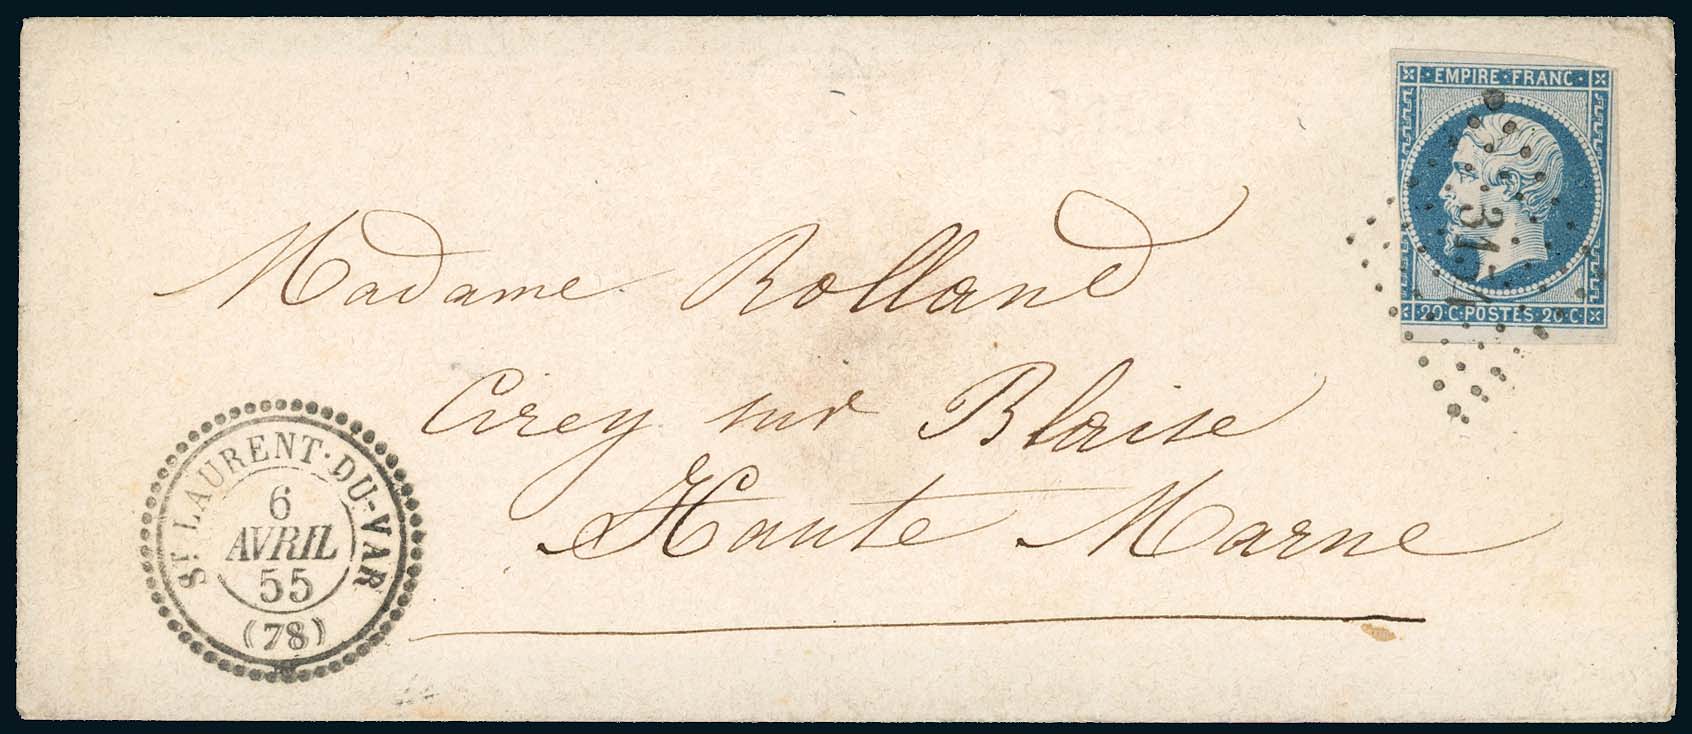 EMPIRE · FRANC
20 · C · POSTES · 20 · C
Madame Rolland
Cirey sur Blaise
Haute Marne
ST LAURENT-DU-VAR
6
AVRIL
55
(78)